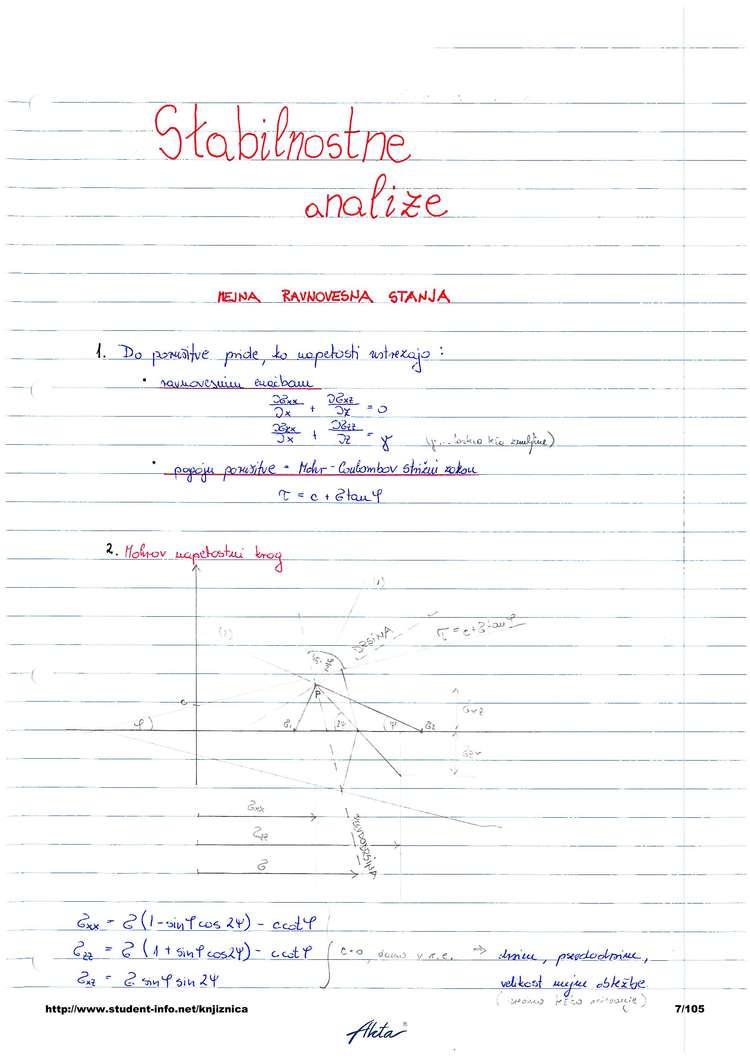 Stabilnostne
analize
MEJNA RAVNOVESNA STANJA
1. Do porušitve pride, ko napetosti ustrezajo :
• ravnovesnim enačbam
∂σxx/∂x + ∂σxz/∂z = 0
∂σzx/∂x + ∂σzz/∂z = γ (γ... teža zemljine)
• pogoju porušitve = Mohr-Coulombov strižni zakon
τ = c + σ tan φ
2. Mohrov napetostni krog
(1)
(2)
DRSINA
τ = c + σ tan φ
P
c
φ
σ1
2ψ
ψ
σ2
σxz
σzx
σxx
σzz
σ
PSEVDODRSINA
σxx = σ (1 - sin φ cos 2ψ) - c cot φ
σzz = σ (1 + sin φ cos 2ψ) - c cot φ
σxz = σ sin φ sin 2ψ
c=0, damo v r.e. ⇒ drsine, psevdodrsine,
velikost mejne obtežbe
http://www.student-info.net/knjiznica
7/105
Akta®